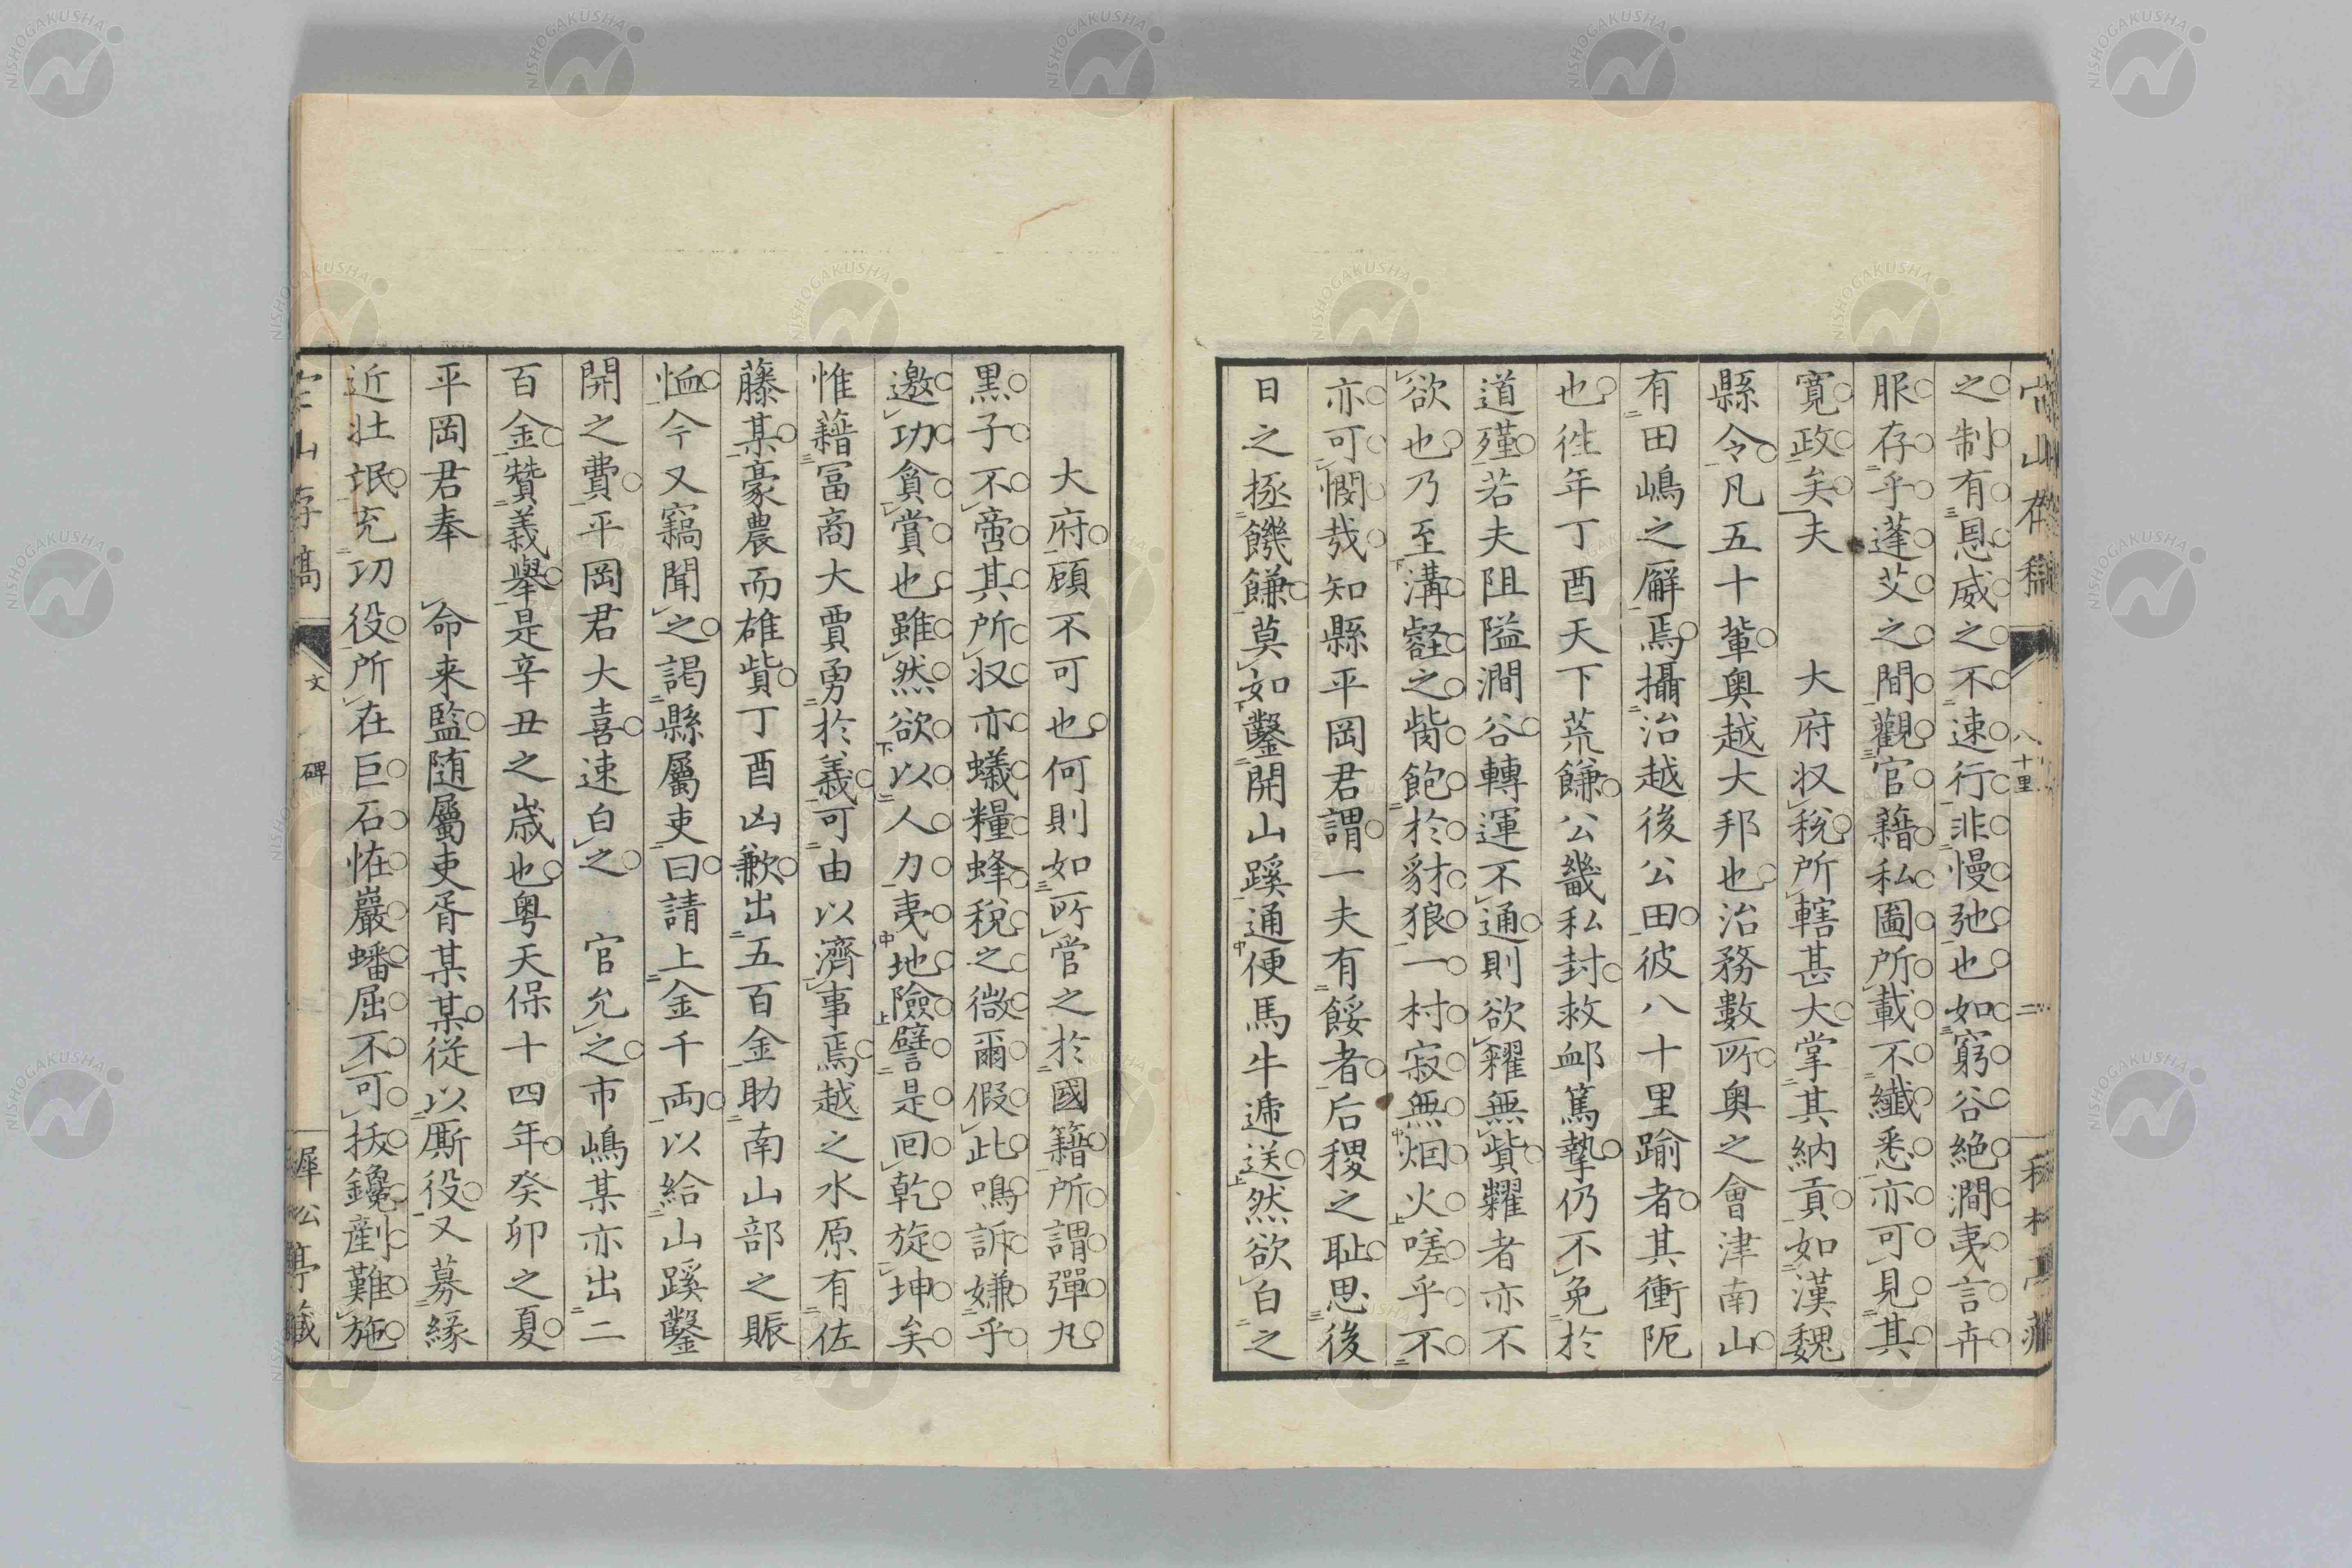 之制有恩威之不速行非慢弛也如窮谷絶澗夷言卉
服存乎蓬艾之間觀官籍私圖所載不纖悉亦可見其
寛政矣夫　　大府収税所轄甚大掌其納貢如漢魏
縣令凡五十輩奥越大邦也治務數所奥之會津南山
有田嶋之廨焉攝治越後公田彼八十里踰者其衝阨
也徃年丁酉天下荒饑公畿私封救邮篤摯仍不免於
道殣若夫阻隘澗谷轉運不通則欲糴無貲糶者亦不
欲也乃至溝壑之胔飽於豺狼一村寂無烟火嗟乎不
亦可憫哉知縣平岡君謂一夫有餒者后稷之耻思後
日之拯饑饉莫如鑿開山蹊通便馬牛遞送然欲白之
　　大府顧不可也何則如所管之於國籍所謂彈丸
黒子不啻其所収亦蟻糧蜂税之微爾假此鳴訴嫌乎
邀功貪賞也雖然欲以人力夷地險譬是回乾旋坤矣
惟藉富商大賈勇於義可由以濟事焉越之水原有佐
藤某豪農而雄貲丁酉凶歉出五百金助南山部之賑
恤今又竊聞之謁縣屬吏曰請上金千両以給山蹊鑿
開之費平岡君大喜速白之　官允之市嶋某亦出二
百金贊義舉是辛丑之歳也粤天保十四年癸卯之夏
平岡君奉　命来監随屬吏胥某某従以厮役又募縁
近壮氓充功役所在巨石恠巖蟠屈不可拔鑱劃難施
文　碑
犀松亭藏
八十里
二